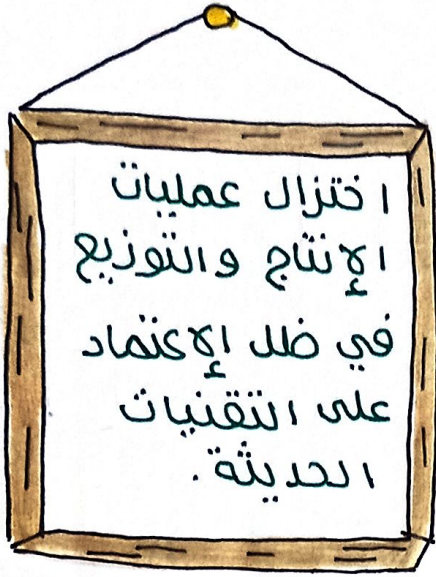 اختزال عمليات
الإنتاج والتوزيع
في ظل الإعتماد
على التقنيات
الحديثة.